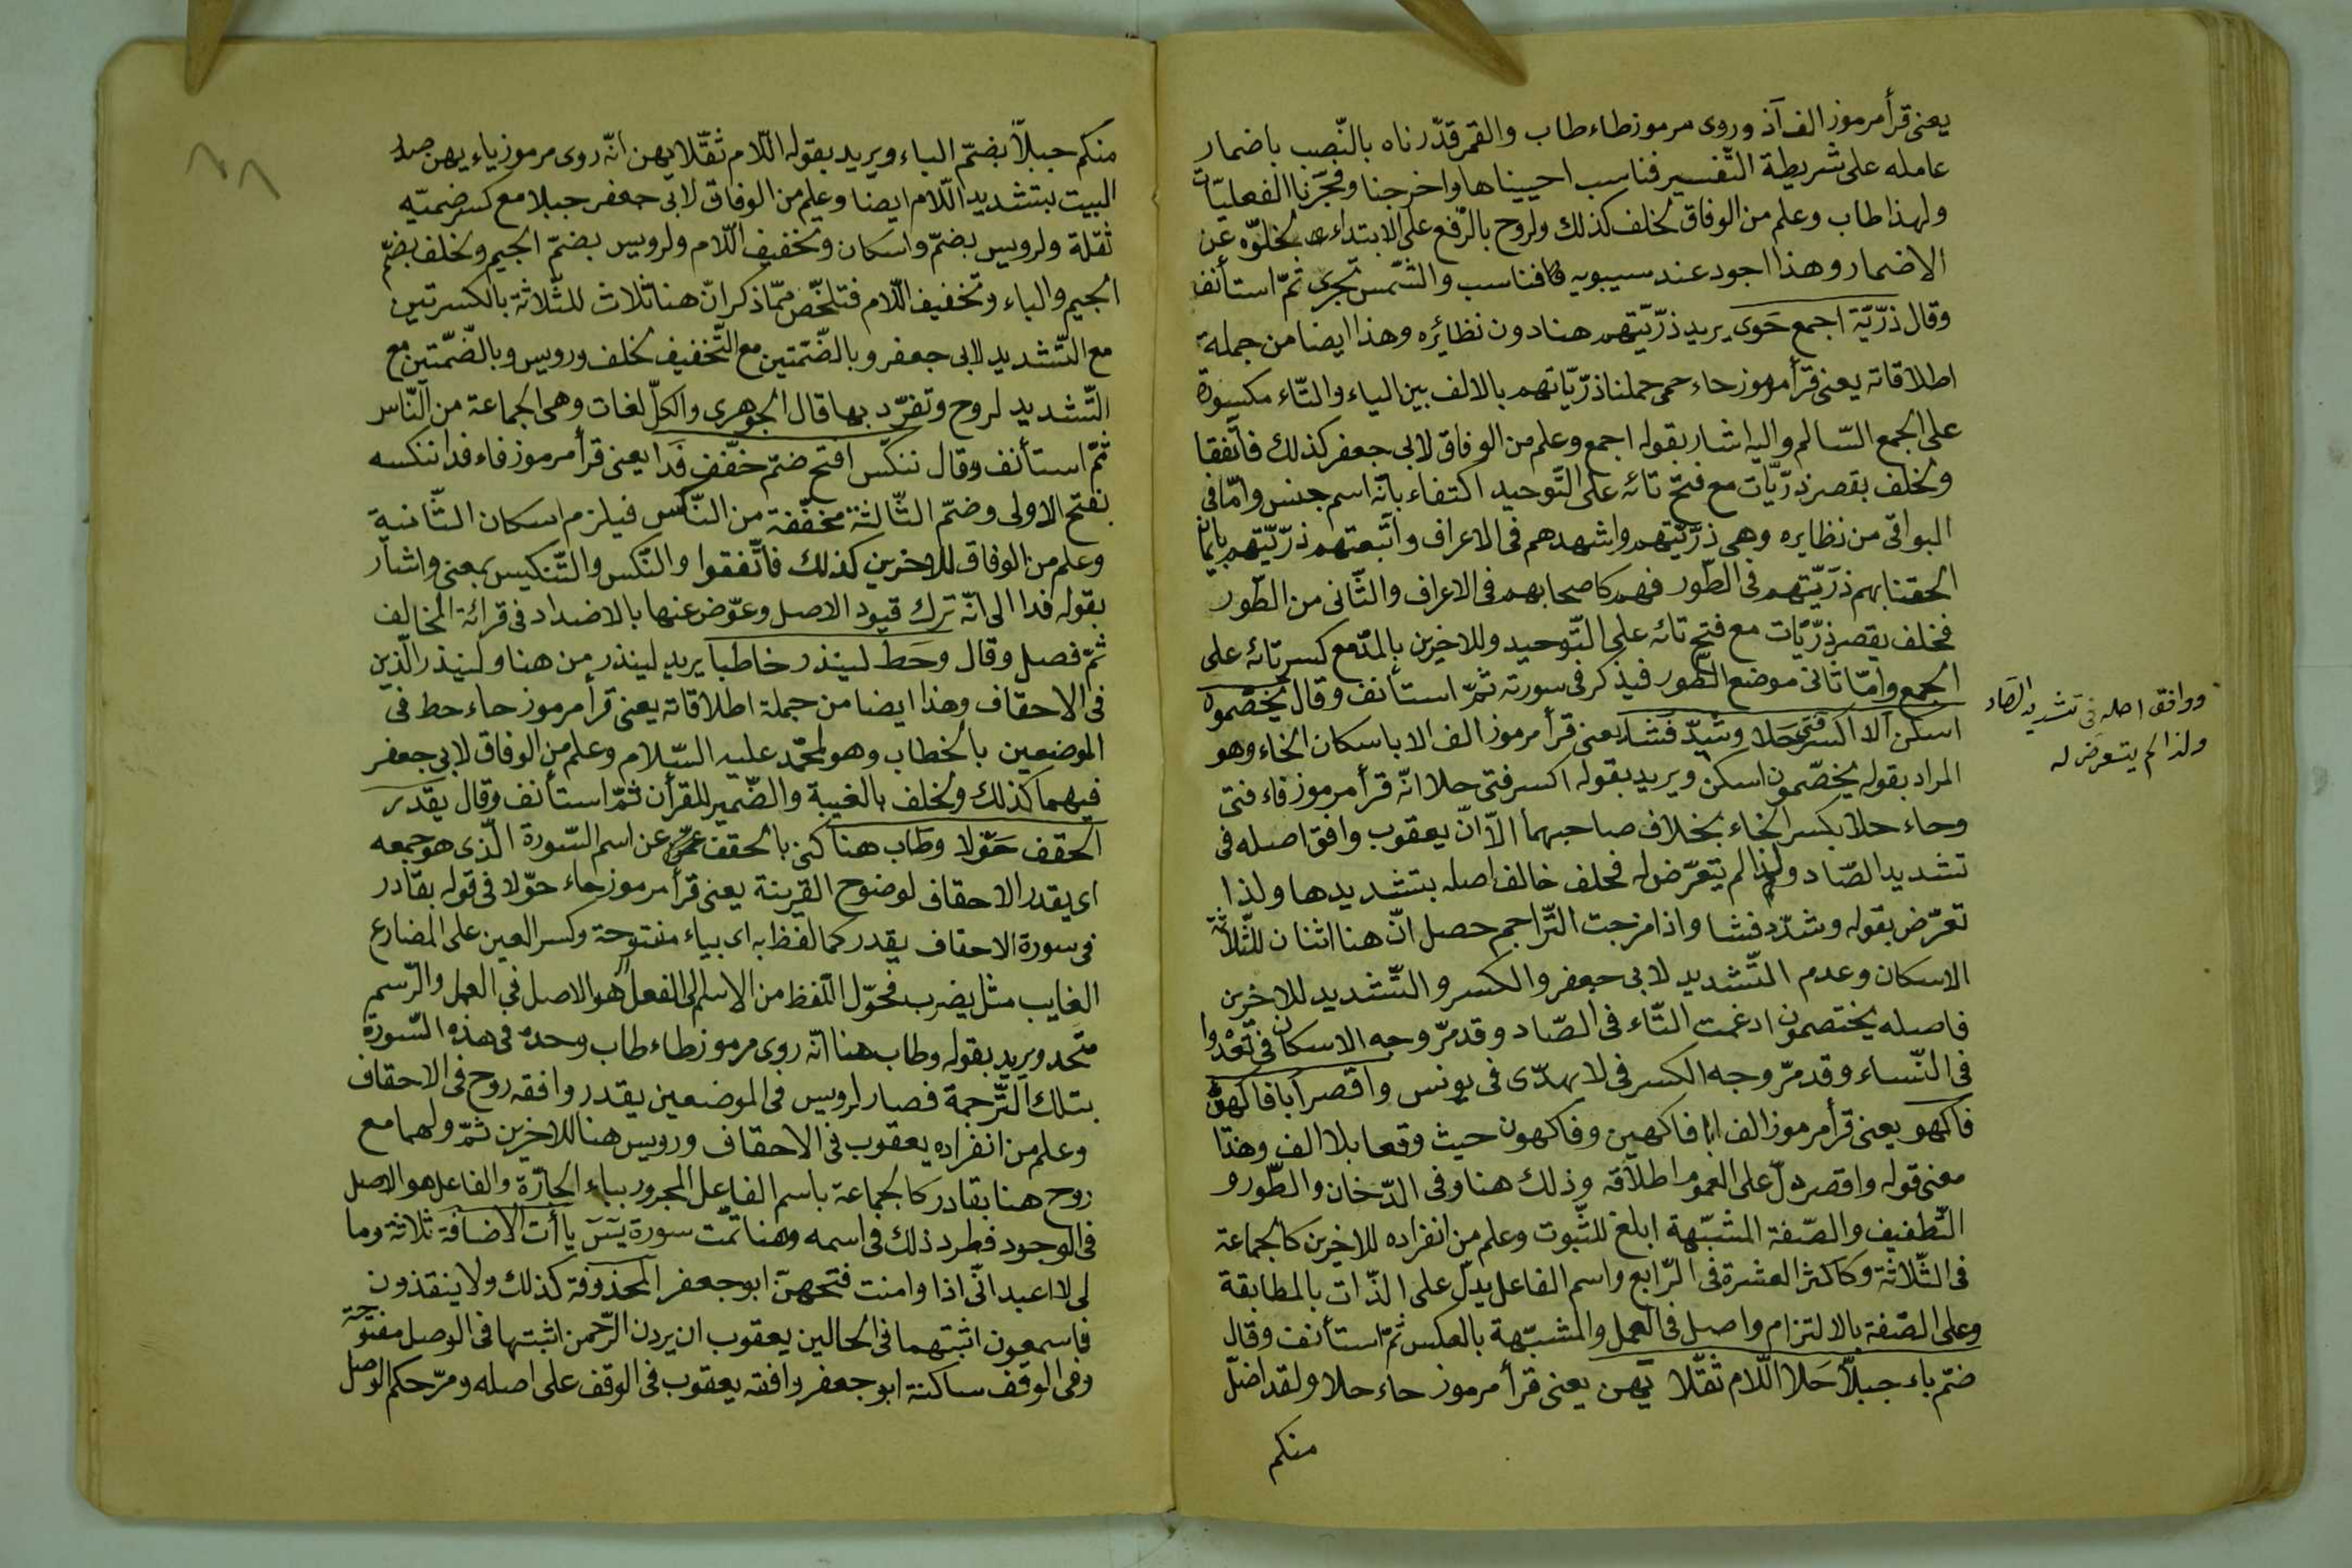 يعنى قرأ مرموز الف آذ وروى مرموز طاء طاب والقمر قدّرناه بالنّصب باضمار
عامله على شريطة التّفسير فناسب احييناها واخرجنا وفجّرنا الفعليّات
ولهذا طاب وعلم من الوفاق لخلف كذلك ولروح بالرّفع على الابتداء لخلوّه عن
الاضمار وهذا اجود عند سيبويه فناسب والشّمس تجرى ثمّ استأنف
وقال ذرّيّة اجمع حَوى يريد ذرّيّتهم هنا دون نظائره وهذا ايضا من جملة
اطلاقاته يعنى قرأ مرموز حاء حمى حملنا ذرّيّاتهم بالالف بين الياء والتّاء مكسورة
على الجمع السّالم واليه اشار بقوله اجمع وعلم من الوفاق لابى جعفر كذلك فاتّفقا
ولخلف بقصر ذرّيّات مع فتح تائه على التّوحيد اكتفاء بانّه اسم جنس وامّا فى
البواقى من نظايره وهى ذرّيّتهم واشهدهم فى الاعراف واتّبعتهم ذرّيّتهم بايمان
الحقنا بهم ذرّيّتهم فى الطّور فهم كاصحابهم فى الاعراف والثّانى من الطّور
فخلف بقصر ذرّيّات مع فتح تائه على التّوحيد وللاخرين بالمدّ مع كسر تائه على
الجمع وامّا ثانى موضع الطّور فيذكر فى سورته ثمّ استأنف وقال يخصّموه
اسكن الا اكسر فتى حلا وشدّ فشا يعنى قرأ مرموز الف الا باسكان الخاء وهو
المراد بقوله يخصّمون اسكن ويريد بقوله اكسر فتى حلا انّه قرأ مرموز فاء فتى
وحاء حلا بكسر الخاء بخلاف صاحبهما الّا انّ يعقوب وافق اصله فى
تشديد الصّاد ولذا لم يتعرّض له فخلف خالف اصله بتشديدها ولذا
تعرّض بقوله وشدّد فشا واذا مزجت التّراجم حصل انّ هنا اثنان للثّلاثة
الاسكان وعدم التّشديد لابى جعفر والكسر والتّشديد للاخرين
فاصله يختصمون ادغمت التّاء فى الصّاد وقد مرّ وجه الاسكان فى تعْدوا
فى النّساء وقد مرّ وجه الكسر فى لا يهدّى فى يونس واقصر ابا فاكهين
فاكهو يعنى قرأ مرموز الف ابا فاكهين وفاكهون حيث وقعا بلا الف وهذا
معنى قوله واقصر دلّ على العموم اطلاقه وذلك هنا وفى الدّخان والطّور و
التّطفيف والصّفة المشبّهة ابلغ للثّبوت وعلم من انفراده للاخرين كالجماعة
فى الثّلاثة وكاكثر العشرة فى الرّابع واسم الفاعل يدلّ على الذّات بالمطابقة
وعلى الصّفة بالالتزام واصل فى العمل والمشبّهة بالعكس ثمّ استأنف وقال
ضمّ باء جبلًّا حَلا اللّام ثقّلا يَهن يعنى قرأ مرموز حاء حلا ولقد اضلّ
منكم
ووافق اصله فى تشديد الصّاد
ولذا لم يتعرض له
منكم جبلّاً بضمّ الباء ويريد بقوله اللّام ثقّلا يهن انّه روى مرموز ياء يهن صدر
البيت بتشديد اللّام ايضا وعلم من الوفاق لابى جعفر جبلا مع كسر ضمتيه
ثقلة ولرويس بضمّ واسكان وتخفيف اللّام ولرويس بضمّ الجيم ولخلف بضمّ
الجيم والباء وتخفيف اللّام فتلخّص ممّا ذكر انّ هنا ثلاث للثّلاثة بالكسرتين
مع التّشديد لابى جعفر وبالضّمّتين مع التّخفيف لخلف ورويس وبالضّمّتين مع
التّشديد لروح وتفرّد بها قال الجوهرى والكلّ لغات وهى الجماعة من النّاس
ثمّ استأنف وقال ننكس افتح ضمّ خفّف فَدا يعنى قرأ مرموز فاء فدا ننكسه
بفتح الاولى وضمّ الثّالثة مخفّفة من النّكس فيلزم اسكان الثّانية
وعلم من الوفاق للاخرين كذلك فاتّفقوا والنّكس والتّنكيس بمعنى واشار
بقوله فدا الى انّه ترك قيود الاصل وعوّض عنها بالاضداد فى قرائة المخالف
ثمّ فصل وقال وحَط لينذر خاطبا يريد لينذر من هنا ولينذر الّذين
فى الاحقاف وهذا ايضا من جملة اطلاقاته يعنى قرأ مرموز حاء حط فى
الموضعين بالخطاب وهو لمحمّد عليه السّلام وعلم من الوفاق لابى جعفر
فيهما كذلك ولخلف بالغيبة والضّمير للقرأن ثمّ استأنف وقال يقدر
الحقف حَوّلا وطاب هنا كنى بالحقف عن اسم السّورة الّذى هو جمعه
اى يقدر الاحقاف لوضوح القرينة يعنى قرأ مرموز حاء حوّلا فى قوله بقادر
فى سورة الاحقاف يقدر كما لفظ به اى بياء مفتوحة وكسر العين على المضارع
الغايب مثل يضرب فحوّل اللّفظ من الاسم الى الفعل هو الاصل فى العمل والرّسم
متّحد ويريد بقوله وطاب هنا انّه روى مرموز طاء طاب وحده فى هذه السّورة
بتلك التّرجمة فصار لرويس فى الموضعين يقدر وافقه روح فى الاحقاف
وعلم من انفراده يعقوب فى الاحقاف ورويس هنا للاخرين ثمّ ولهما مع
روح هنا بقادر كالجماعة باسم الفاعل المجرور بباء الجارّة والفاعل هو الاصل
فى الوجود فطرد ذلك فى اسمه وهنا تمّت سورة يٓسٓ ياأت الاضافة ثلاثة وما
لى لا اعبد انّى اذا وامنت فتحهنّ ابو جعفر المحذوفة كذلك ولا ينقذون
فاسمعون اثبتهما فى الحالين يعقوب ان يردن الرّحمن اثبتها فى الوصل مفتوحة
وفى الوقف ساكنة ابو جعفر وافقه يعقوب فى الوقف على اصله ومرّ حكم الوصل